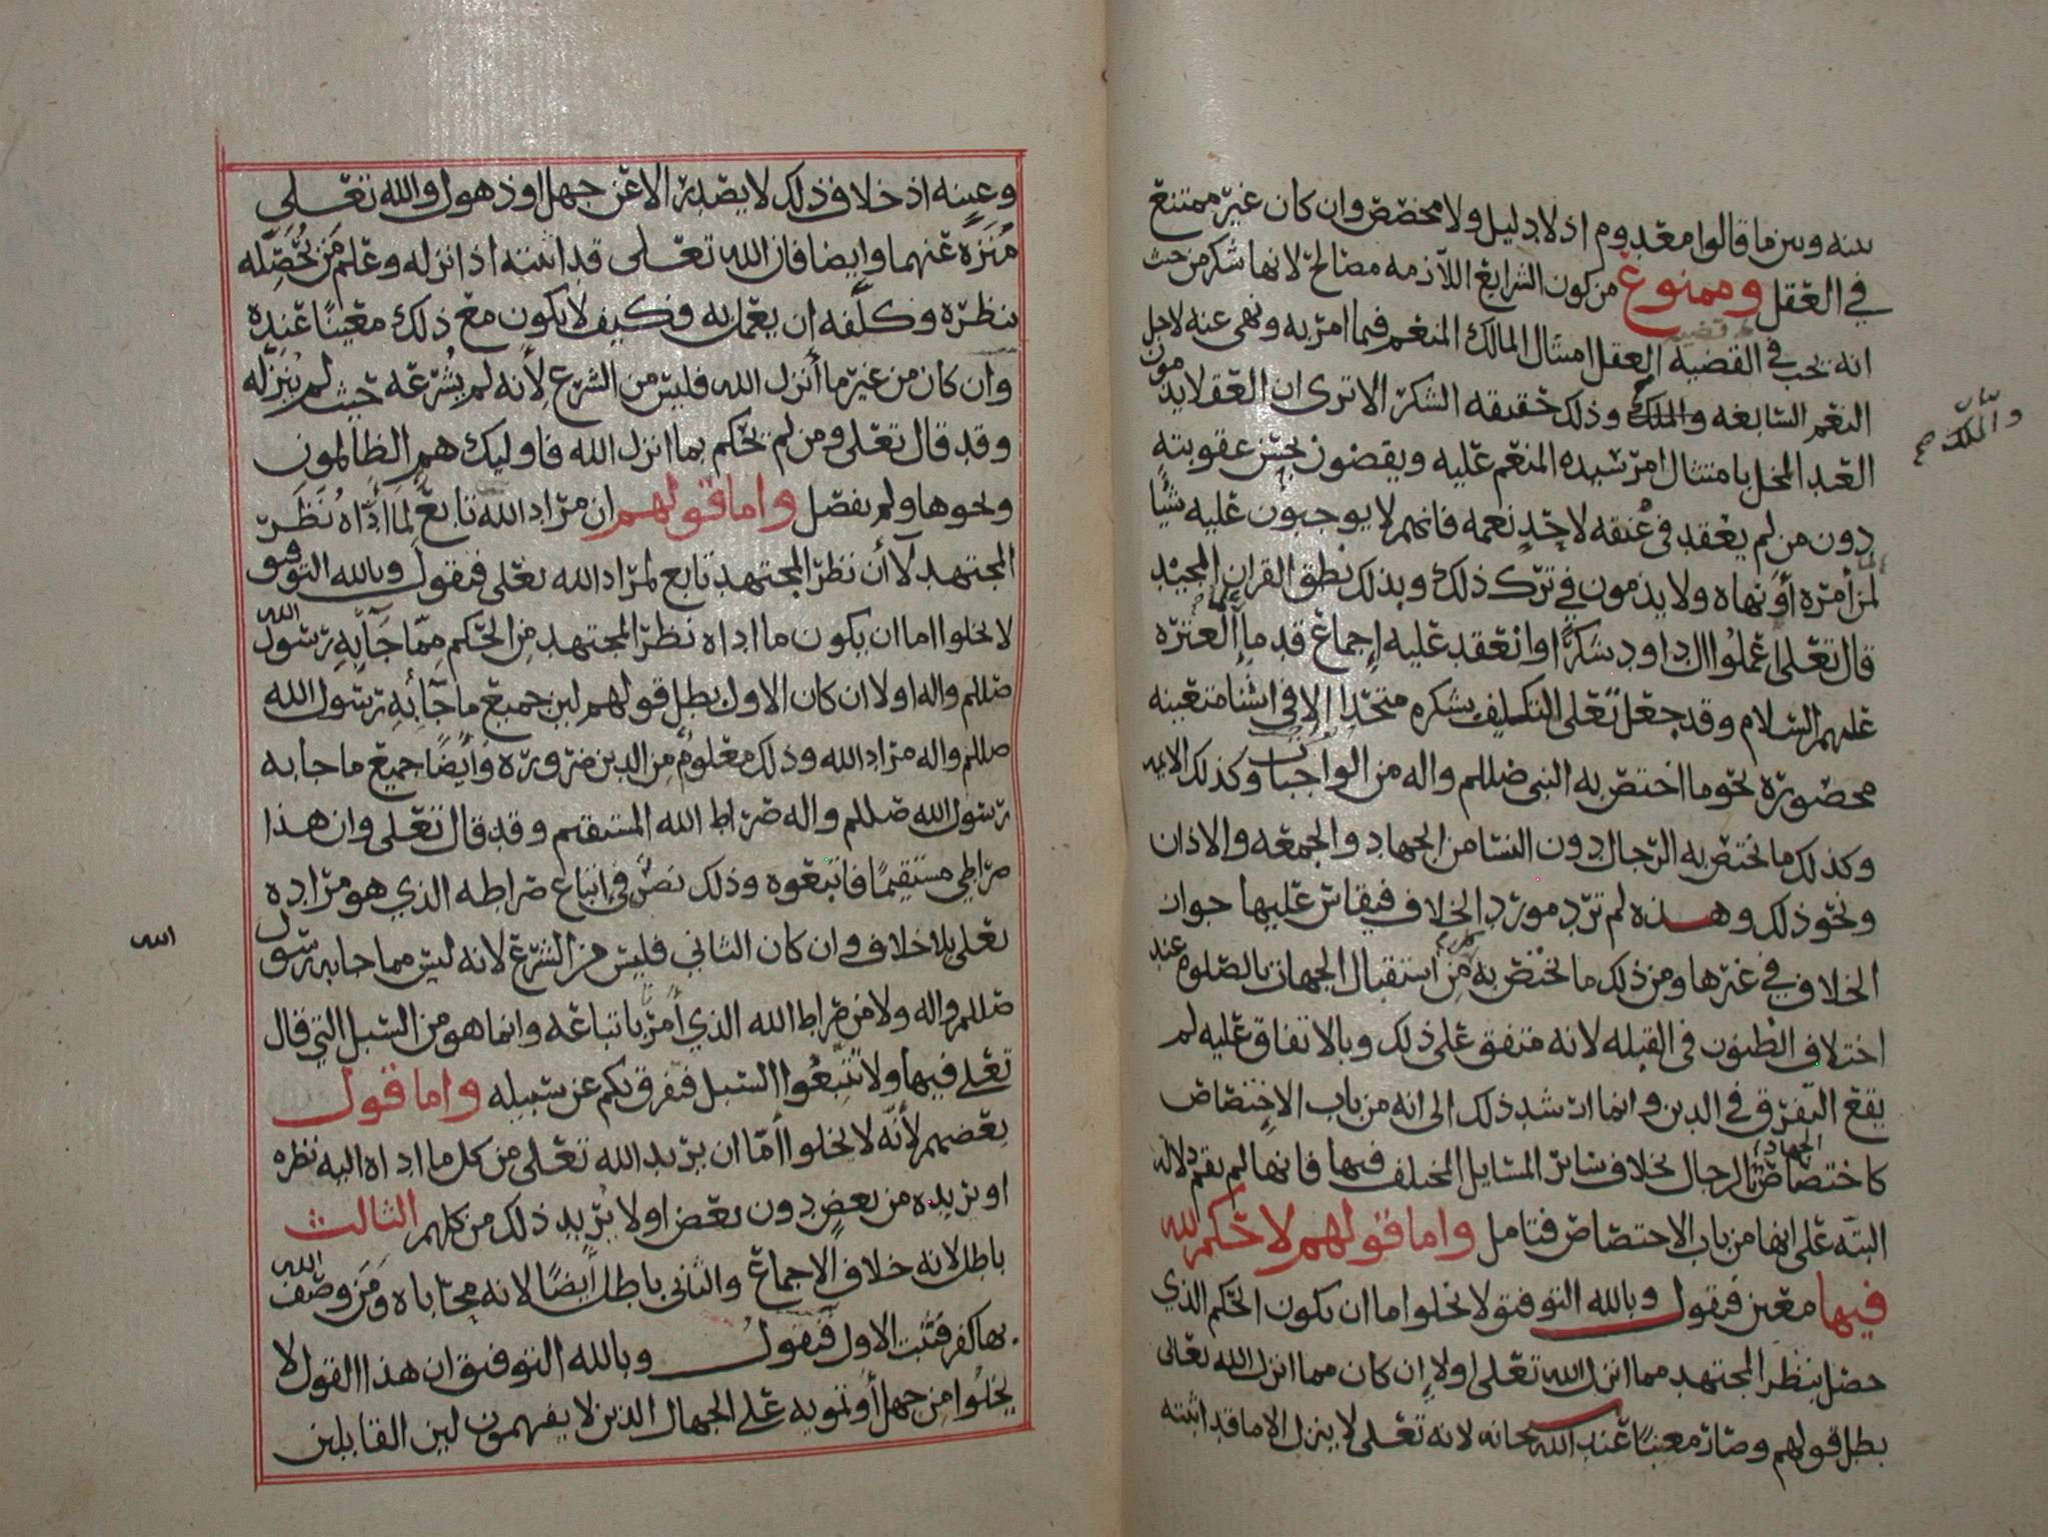 بينه وبين ما قالوا معدوم اذ لا دليل ولا مخصص وان كان غير ممتنع
في العقل وممنوع من كون الشرايع اللازمه مصالح لانها شكر من حيث
انه يجب في القضيه العقل امتثال المالك المنعم فيما امر به ونهى عنه لاجل
النعم السابغه والملك وذلك حقيقه الشكر الا ترى ان العقلا يذمون
العبد المخل بامتثال امر سيده المنعم عليه ويقضون بحسن عقوبته
دون من لم يعقد في عنقه لاحد نعمه فانهم لا يوجبون عليه شيا
لمن أمره أو نهاه ولا يذمون في ترك ذلك وبذلك نطق القران المجيد
قال تعلى اعملوا ال داود شكرًا وانعقد عليه إجماع قدما العتره
عليهم السلام وقد جعل تعلى التكليف بشكره متحدا إلا في اشيا متعينه
محصوره نحو ما اختص به النبي صللم واله من الواجبات وكذلك الايمه
وكذلك ما يختص به الرجال دون النسا من الجهاد والجمعه والاذان
ونحو ذلك وهذه لم ترد مورد الخلاف فيقاس عليها جواز
الخلاف في غيرها ومن ذلك ما يختص به من أستقبال الجهات بالصلوه عند
اختلاف الظنون في القبله لانه متفق على ذلك وبالاتفاق عليه لم
يقع التفرق في الدين وانما ارشد ذلك الى انه من باب الاختصاص
كاختصاص الجهاد بالرجال بخلاف سائر المسايل المختلف فيها فانها لم يقم دلاله
البته على انها من باب الاختصاص فتامل واما قولهم لا حكم لله
فيها معين فنقول وبالله التوفيق لا يخلوا اما ان يكون الحكم الذي
حصل بنظر المجتهد مما انزل الله تعلى اولا إن كان مما انزل الله تعالى
بطل قولهم وصار معينًا عند الله سبحانه لانه تعلى لا ينزل الا ما قد اثبته
والملك
وعينه اذ خلاف ذلك لا يصدر الا عن جهل او ذهول والله تعلى
منزه عنهما وايضا فان الله تعلى قد اثبته اذ انزله وعلم من يحصله
بنظره وكلفه ان يعمل به فكيف لا يكون مع ذلك معينًا عنده
وان كان من غير ما أنزل الله فليس من الشرع لأنه لم يشرعه حيث لم ينزله
وقد قال تعلى ومن لم يحكم بما انزل الله فاوليك هم الظالمون
ونحوها ولم يفصل واما قولهم ان مراد الله تابع لما أداه نظر
المجتهد لا أن نظر المجتهد تابع لمراد الله تعلى فنقول وبالله التوفيق
لا يخلوا اما ان يكون ما اداه نظر المجتهد من الحكم مما جآ به رسول الله
صللم واله اولا ان كان الاول بطل قولهم لين جميع ما جآ به رسول الله
صللم واله مراد الله وذلك معلوم من الدين ضروره وأيضًا جميع ما جا به
رسول الله صللم واله صراط الله المستقيم وقد قال تعلى وان هذا
صراطي مستقيمًا فاتبعوه وذلك نص في إتباع صراطه الذي هو مراده
تعلى بلا خلاف وان كان الثاني فليس من الشرع لانه ليس مما جا به رسول
الله
صللم واله ولا من صراط الله الذي أمر باتباعه وانما هو من السبل التي قال
تعلى فيها ولا تتبعوا السبل فتفرق بكم عن سبيله واما قول
بعضهم لأنه لا يخلوا أما ان يريد الله تعلى من كل ما اداه اليه نظره
او يريده من بعض دون بعض اولا يريد ذلك من كلهم الثالث
باطل لانه خلاف الإجماع والثاني باطل أيضًا لانه محاباه ومن وصف الله
بها كفر فثبت الاول فنقول وبالله التوفيق ان هذا القول لا
يخلوا من جهل أو تمويه على الجهال الذين لا يفهمون لين القايلين